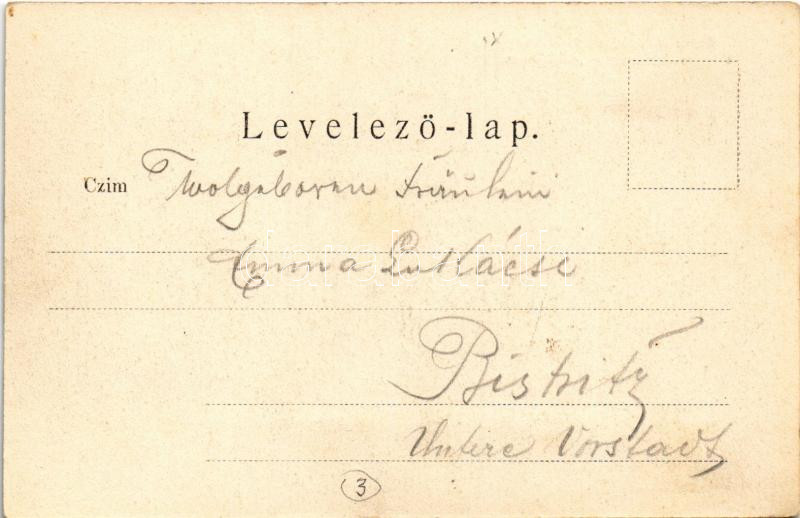 Levelező-lap.
Czim Wolgeboren Fräulein
Emma Lukácsi
Bistritz
Untere Vorstadt
3